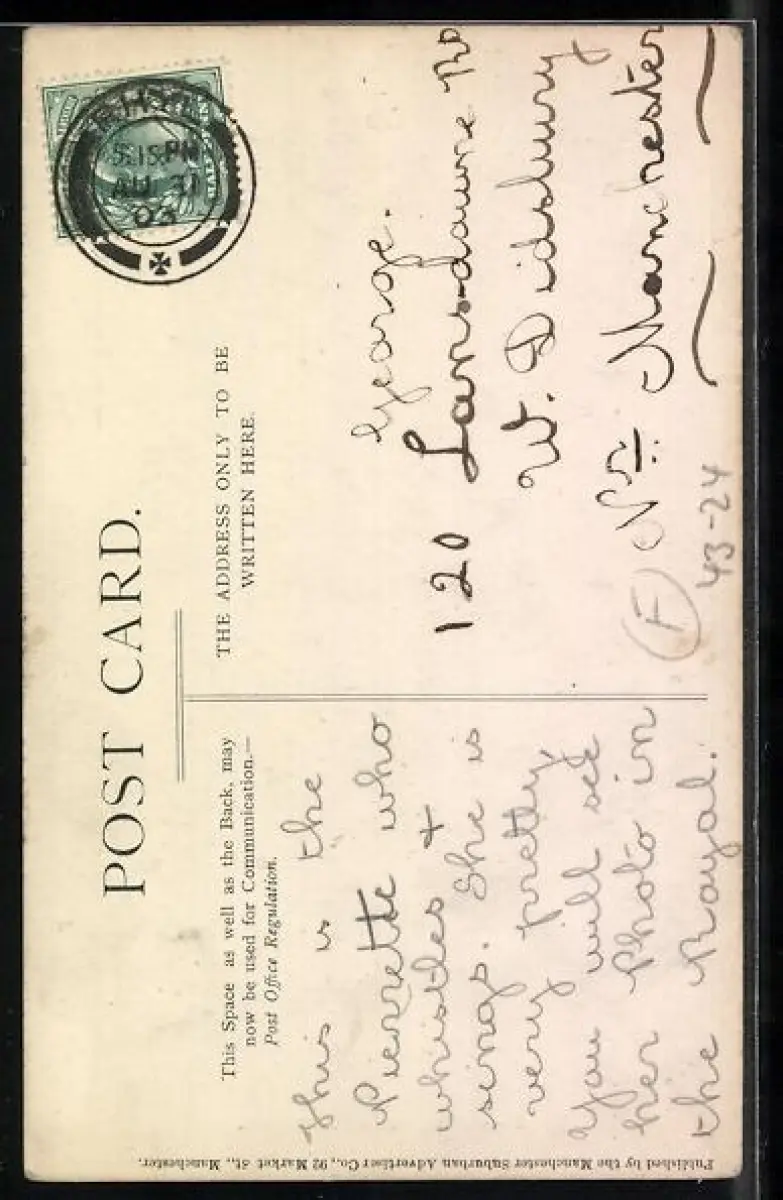 POST CARD.
This Space as well as the Back, may
now be used for Communication.—
Post Office Regulation.
THE ADDRESS ONLY TO BE
WRITTEN HERE.
This is the
Pierrette who
whistles +
sings. She is
very pretty,
You will see
her Photo in
the Royal.
George.
120 Lansdowne Rd
W. Didsbury
Nr. Manchester
F
43-24
RHYL
5.15 PM
AU 31
03
Published by the Manchester Suburban Advertiser Co., 92 Market St., Manchester.